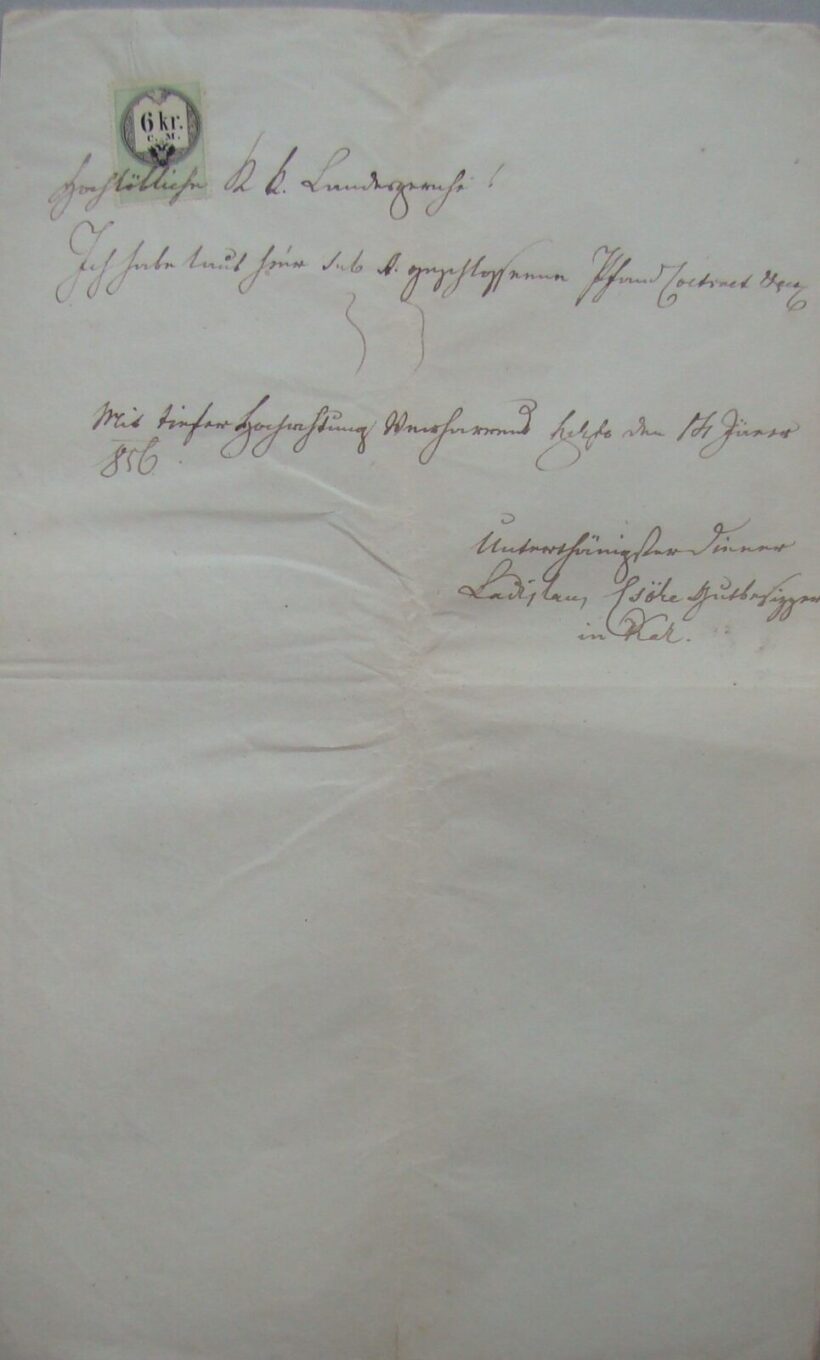 6 kr.
C. M.
Hochlöbliche K k. Landesgericht!
Ich habe laut hier sub A. geschlossenen Pfand Contract
Mit tiefer Hochachtung Verharrend den Jäner
856
Unterthänigster Diener
Ladislaus Csöke Gutbesizzer
in